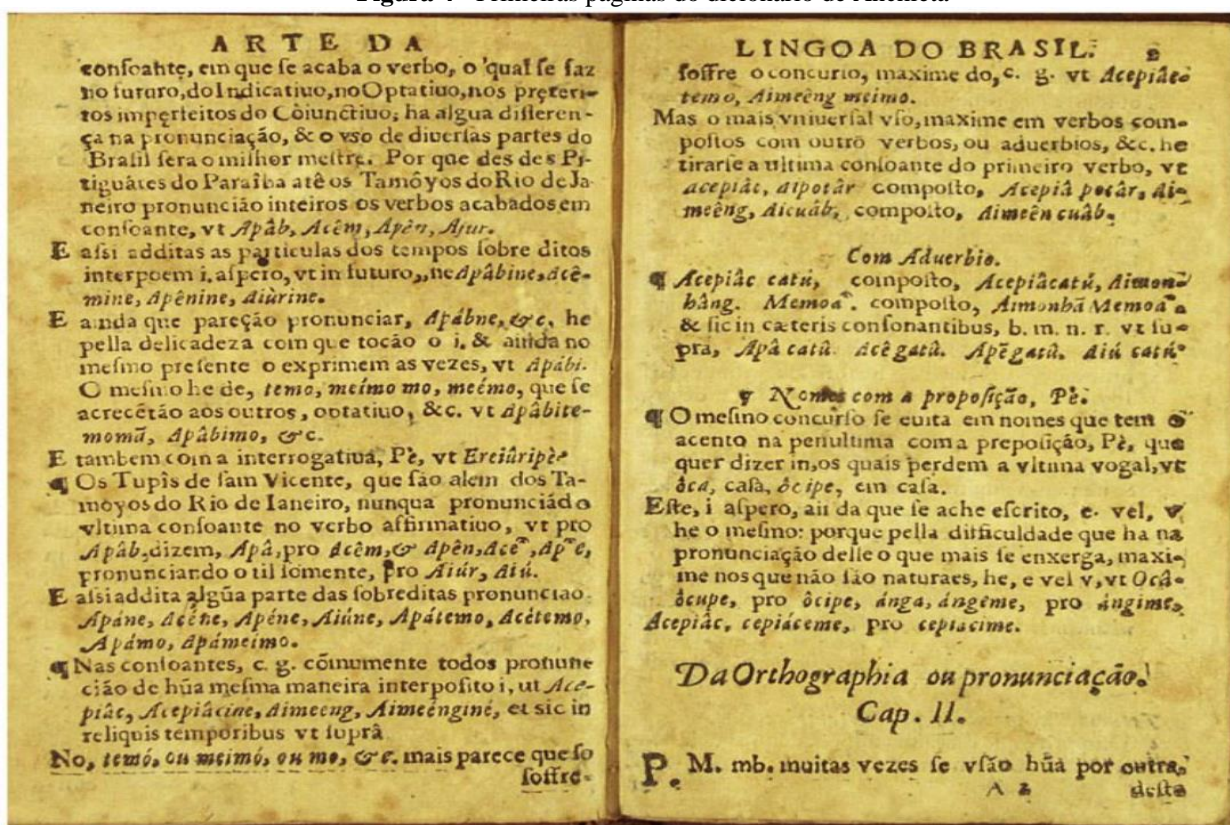 Figura 4 - Primeiras páginas do dicionário de Anchieta
ARTE DA
conſoante, em que ſe acaba o verbo, o qual ſe faz
no futuro, do Indicatiuo, no Optatiuo, nos pręteri-
tos imperfeitos do Cõiunctiuo; ha algua differen-
ça na pronunciação, & o vſo de diuerſas partes do
Braſil ſera o milhor meſtre. Por que des des Pi-
tiguáres do Paraîba atê os Tamôyos do Rio de Ja
neiro pronuncião inteiros os verbos acabados em
conſoante, vt Apâb, Acêm, Apên, Ajur.
E aſsi additas as particulas dos tempos ſobre ditos
interpoem i, aſpero, vt in futuro, ne Apâbine, Acê-
mine, Apênine, Aiùrine.
E ainda que pareção pronunciar, Apâbne, &c. he
pella delicadeza com que tocão o i. & ainda no
meſmo preſente o exprimem as vezes, vt Apâbi.
O meſmo he de, temo, meímo mo, meémo, que ſe
acrecẽtão aos outros, optatiuo, &c. vt Apâbite-
momã, Apâbimo, &c.
E tambem com a interrogatiua, Pè, vt Ereiûripè?
¶ Os Tupîs de ſam Vicente, que ſão alem dos Ta-
moyos do Rio de Ianeiro, nunqua pronunciãd o
vltima conſoante no verbo affirmatiuo, vt pro
Apâb, dizem, Apâ, pro Acêm, & Apên, Acẽ, Apẽ,
pronunciando o til ſomente, pro Aiúr, Aiú.
E aſsi addita algũa parte das ſobreditas pronunciao.
Apáne, Acéne, Apéne, Aiúne, Apátemo, Acètemo,
Apámo, Apámeimo.
¶ Nas conſoantes, c. g. cõmumente todos pronun
cião de hũa meſma maneira interpoſito i, ut Ace-
piâc, Acepiâcine, Aimeeng, Aimeénginé, et sic in
reliquis temporibus vt ſuprâ
No, temó, ou meimó, ou mo, &c. mais parece que ſo
ſoffre-
LINGOA DO BRASIL. 2
ſoffre o concurſo, maxime do, c. g. vt Acepiâc
temo, Aimeêng meimo.
Mas o mais vniuerſal vſo, maxime em verbos com-
poſtos com outro verbos, ou aduerbios, &c. he
tirarſe a ultima conſoante do primeiro verbo, vt
acepiâc, aipotâr compoſto, Acepiâ potâr, Ai-
meêng, Aicuâb, compoſto, Aimeên cuâb.
Com Aduerbio.
¶ Acepiâc catú, compoſto, Acepiâcatú, Aimon-
hâng. Memoã. compoſto, Aimonhã Memoã
& ſic in cæteris conſonantibus, b. m. n. r. vt ſu-
pra, Apâ catû. Acê gatû. Apẽ gatû. Aiú catú
¶ Nomes com a propoſição, Pè.
¶ O meſmo concurſo ſe euita em nomes que tem o
acento na penultima com a prepoſição, Pè, que
quer dizer in, os quais perdem a vltima vogal, vt
ôca, caſa, ôcipe, em caſa.
Eſte, i aſpero, ain da que ſe ache eſcrito, e. vel, v
he o meſmo: porque pella difficuldade que ha na
pronunciação delle o que mais ſe enxerga, maxi-
me nos que não ſão naturaes, he, e vel v, vt Ocâ-
ôcupe, pro ôcipe, ánga, ángême, pro ángime,
Acepiâc, cepiáceme, pro cepiacime.
Da Orthographia ou pronunciação.
Cap. II.
P. M. mb. muitas vezes ſe vſão hũa por outra,
A 2 deſta